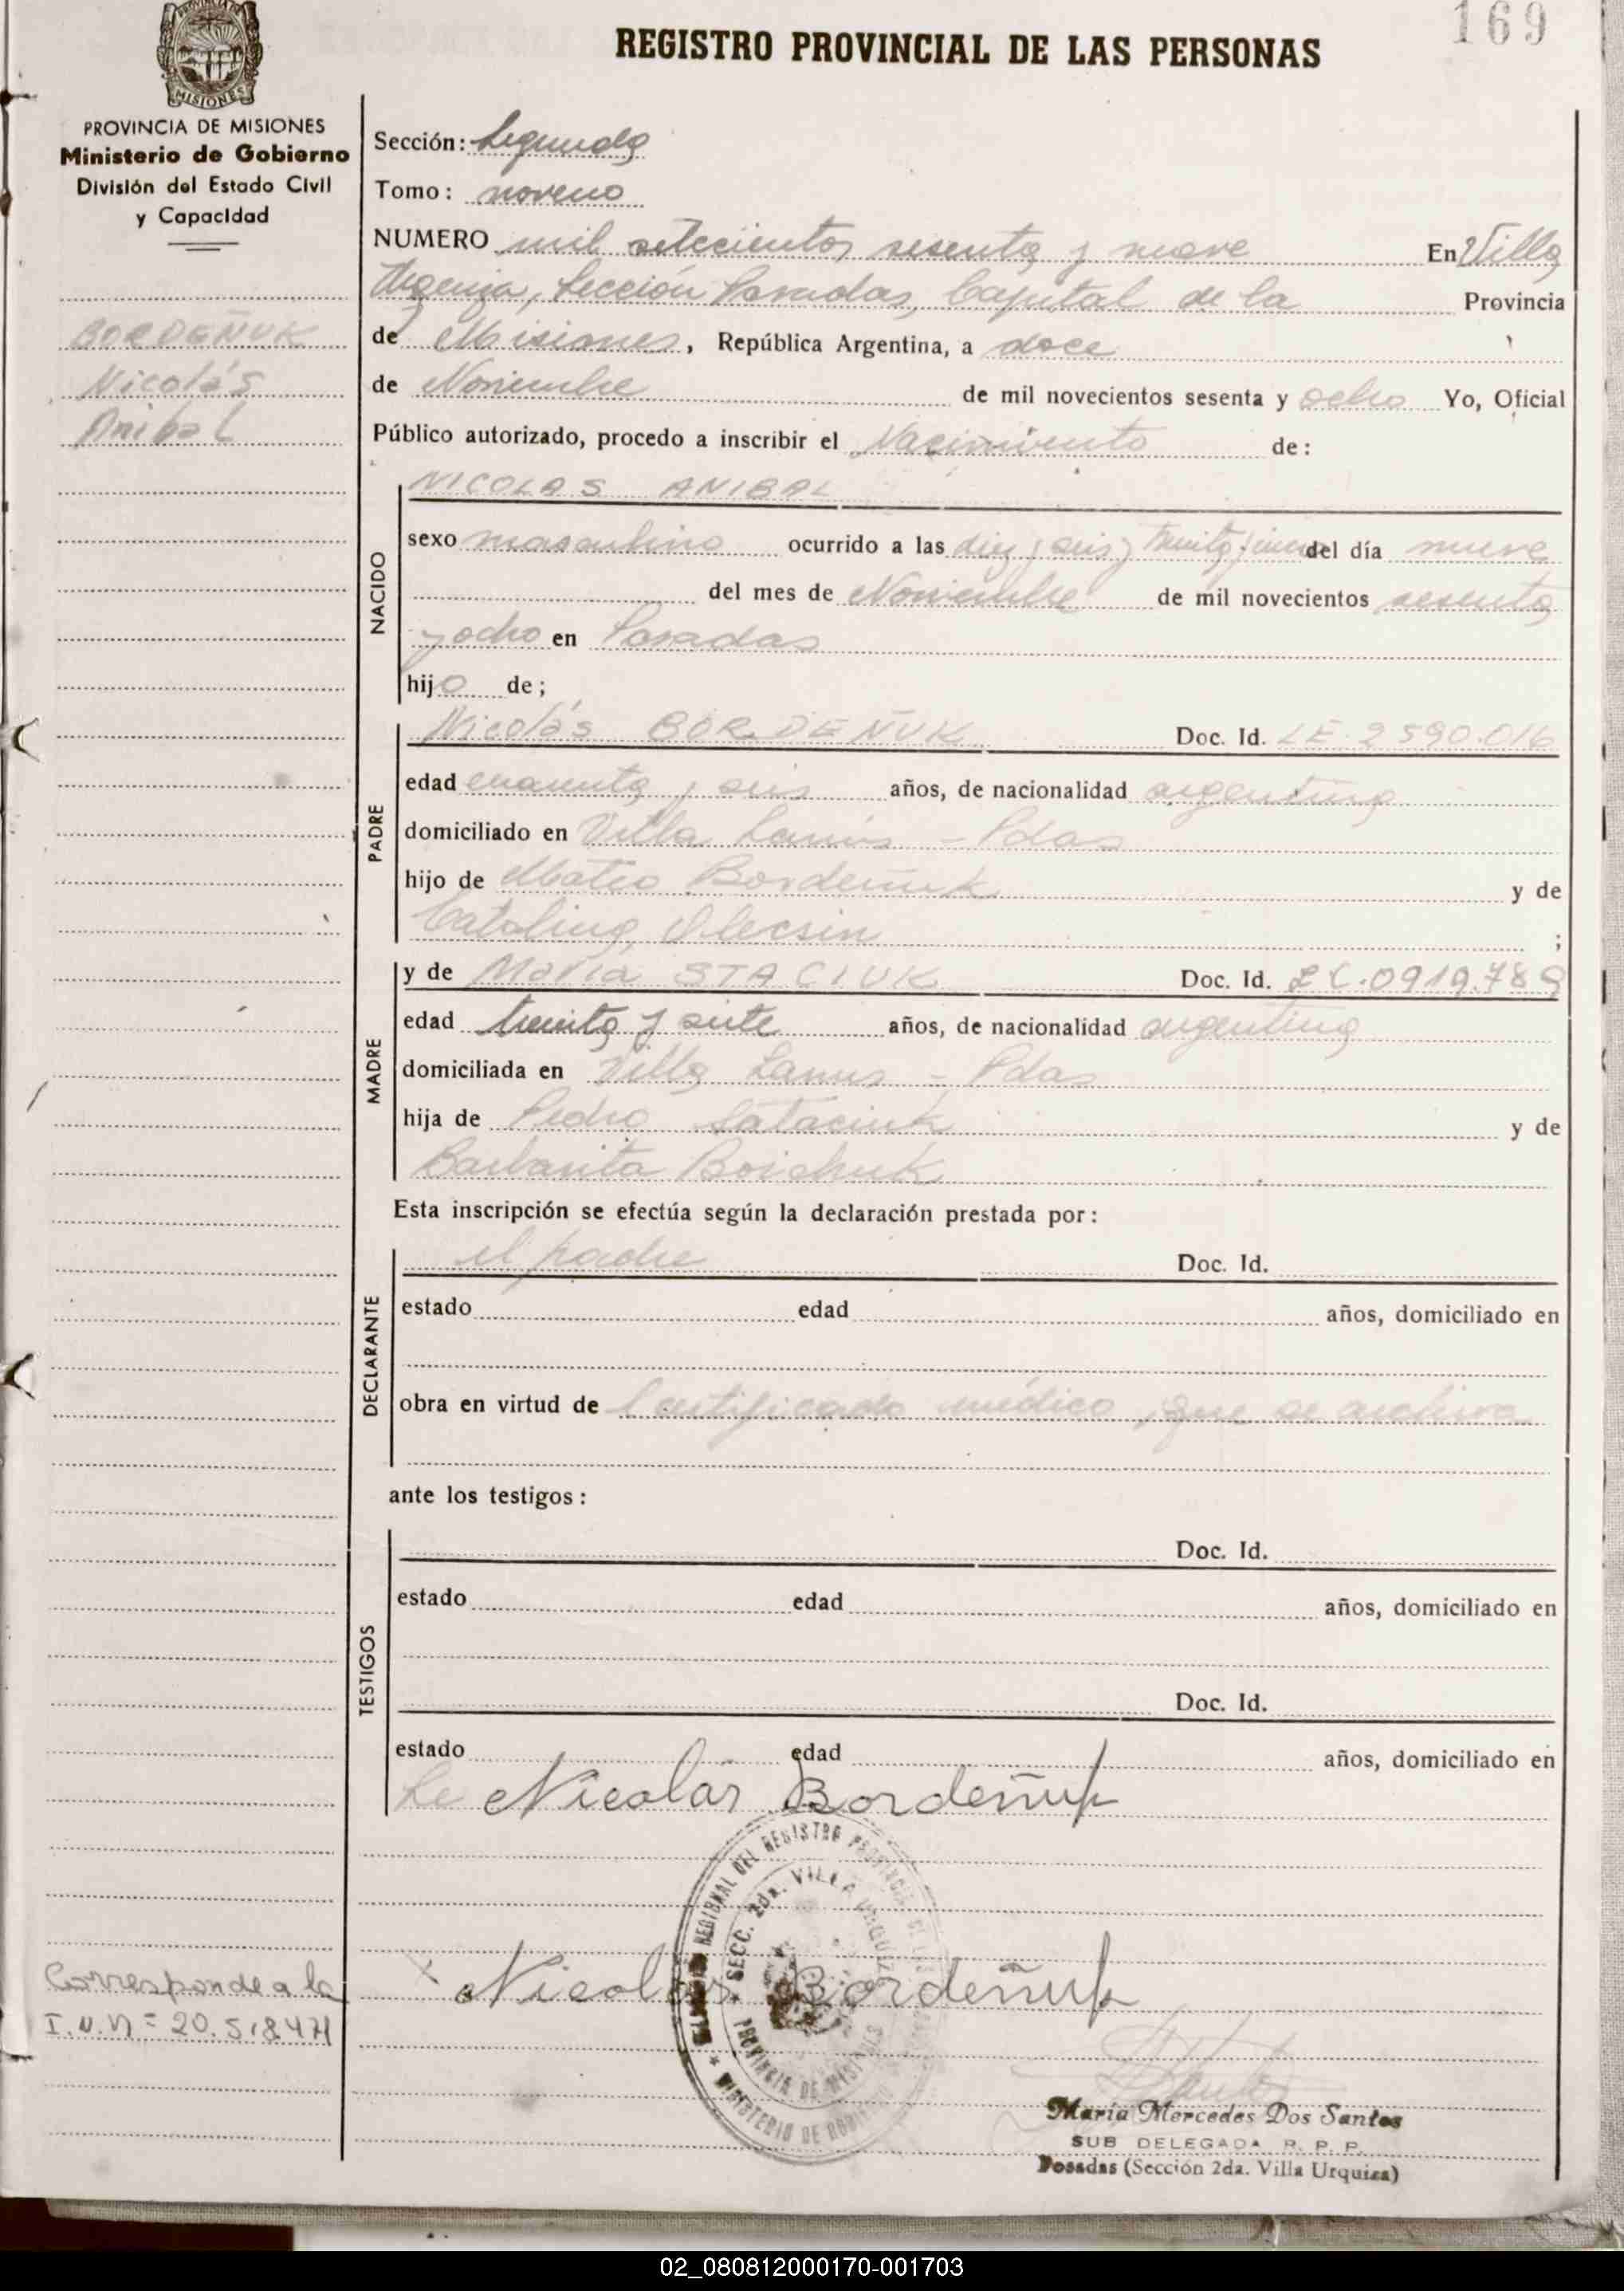 169
REGISTRO PROVINCIAL DE LAS PERSONAS
MISIONES
PROVINCIA DE MISIONES
Ministerio de Gobierno
División del Estado Civil
y Capacidad
BORDEÑUK
Nicolás
Anibal
Sección: Segunda
Tomo: noveno
NUMERO mil setecientos sesenta y nueve En Villa
Urquiza, Sección Posadas, Capital de la Provincia
de Misiones, República Argentina, a doce
de Noviembre de mil novecientos sesenta y ocho Yo, Oficial
Público autorizado, procedo a inscribir el Nacimiento de:
NACIDO
NICOLAS ANIBAL
sexo masculino ocurrido a las diez y seis y treinta y cinco del día nueve
del mes de Noviembre de mil novecientos sesenta
y ocho en Posadas
hijo de;
PADRE
Nicolás BORDEÑUK Doc. Id. LE. 2590.016
edad cuarenta y seis años, de nacionalidad argentina
domiciliado en Villa Lanús - Pdas
hijo de Mateo Bordeñuk y de
Catalina Olecsin ;
MADRE
y de María STACIUK Doc. Id. LC.0919.789
edad treinta y siete años, de nacionalidad argentina
domiciliada en Villa Lanus - Pdas
hija de Pedro Stataciuk y de
Barbarita Boichuk
Esta inscripción se efectúa según la declaración prestada por:
DECLARANTE
el padre Doc. Id.
estado edad años, domiciliado en
obra en virtud de Certificado médico, que se archiva
ante los testigos:
TESTIGOS
Doc. Id.
estado edad años, domiciliado en
Doc. Id.
estado edad años, domiciliado en
Le Nicolás Bordeñuk
REGIONAL DEL REGISTRO PROVINCIAL DE LAS
SECC. 2da. VILLA URQUIZA
PROVINCIA DE MISIONES
MINISTERIO DE GOBIERNO
Nicolás Bordeñuk
Corresponde a la
I.N.Nº 20.518.471
María Mercedes Dos Santos
SUB DELEGADA R. P. P.
Posadas (Sección 2da. Villa Urquiza)
02_080812000170-001703